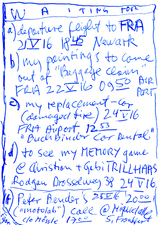 WAITING FOR
a) departure flight to FRA
21 V 16 18:45 Newark
b) my paintings to come
out of "Baggage Claim"
FRA 22 V 16 09:50 AIR
PORT
c) my replacement-car
(damaged tire) 24 V 16
FRA Airport 12:53
"Buchbinder Car Rental"
d) to see my MEMORY game
@ Christian + Gabi TRILLHAAS
Rodgau Drosselweg 38 24 V 16
Peter Bender's 25 V 16 20:00
cake @
17:00 Frankfurt